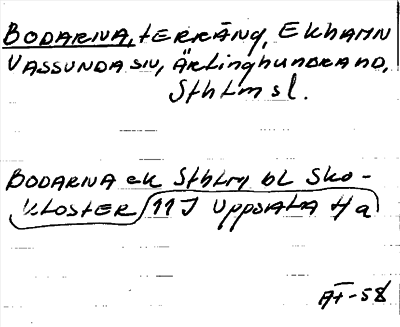 BODARNA, tERRÄNG, EKHAMN
VASSUNDA SN, ÄRLINGHUNDRA HD,
Sthlms l.
BODARNA ek Sthlm bl Sko-
KLOSTER 11 I Uppsala Ha
AT-58